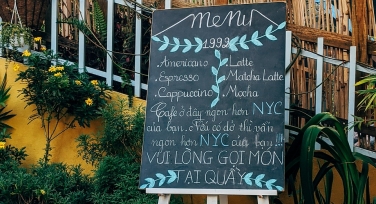 MENU
1999
Americano Latte
Espresso Matcha Latte
Cappuccino Mocha
Cafe ở đây ngon hơn NYC
của bạn. Nếu có dở thì vẫn
ngon hơn NYC của bạn!!!
VUI LÒNG GỌI MÓN
TẠI QUẦY